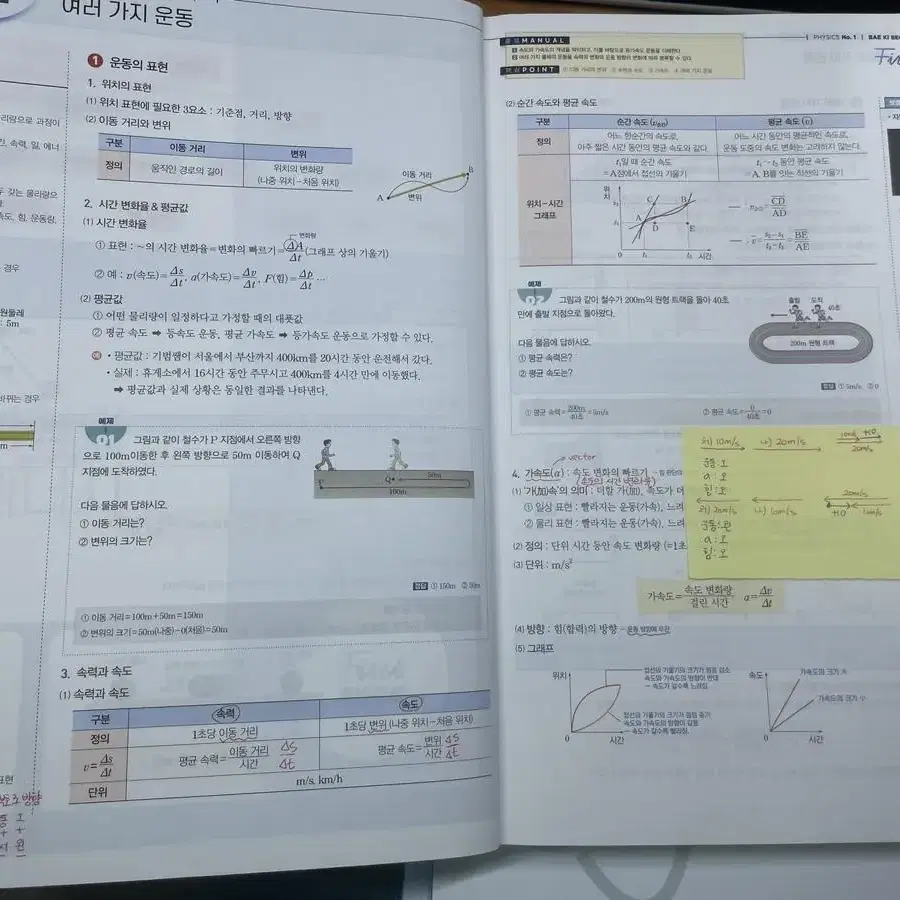 여러 가지 운동
1 운동의 표현
1. 위치의 표현
(1) 위치 표현에 필요한 3요소 : 기준점, 거리, 방향
(2) 이동 거리와 변위
구분 이동 거리 변위
정의 움직인 경로의 길이 위치의 변화량 (나중 위치-처음 위치)
이동 거리
A 변위 B
2. 시간 변화율 & 평균값
(1) 시간 변화율
변화량
① 표현 : ~의 시간 변화율=변화의 빠르기=ΔA/Δt(그래프 상의 기울기)
② 예 : v(속도)=Δs/Δt, a(가속도)=Δv/Δt, F(힘)=Δp/Δt …
(2) 평균값
① 어떤 물리량이 일정하다고 가정할 때의 대푯값
② 평균 속도 ➡ 등속도 운동, 평균 가속도 ➡ 등가속도 운동으로 가정할 수 있다.
예 • 평균값 : 기범쌤이 서울에서 부산까지 400km를 20시간 동안 운전해서 갔다.
• 실제 : 휴게소에서 16시간 동안 주무시고 400km를 4시간 만에 이동했다.
➡ 평균값과 실제 상황은 동일한 결과를 나타낸다.
예제
01 그림과 같이 철수가 P 지점에서 오른쪽 방향
으로 100m이동한 후 왼쪽 방향으로 50m 이동하여 Q
지점에 도착하였다.
P Q 50m
100m
다음 물음에 답하시오.
① 이동 거리는?
② 변위의 크기는?
정답 ① 150m ② 50m
① 이동 거리=100m+50m=150m
② 변위의 크기=50m(나중)-0(처음)=50m
3. 속력과 속도
(1) 속력과 속도
구분 속력 속도
정의 1초당 이동 거리 1초당 변위(나중 위치-처음 위치)
v=Δs/Δt 평균 속력=이동 거리/시간 Δs/Δt 평균 속도=변위/시간 Δs/Δt
단위 m/s, km/h
PHYSICS No.1
MANUAL
1 속도와 가속도의 개념을 파악하고, 이를 바탕으로 등가속도 운동을 이해한다.
2 여러 가지 물체의 운동을 속력의 변화와 운동 방향의 변화에 따라 분류할 수 있다.
POINT
(2) 순간 속도와 평균 속도
구분 순간 속도 평균 속도
정의 어느 한순간의 속도로, 아주 짧은 시간 동안의 평균 속도와 같다. 어느 시간 동안의 평균적인 속도로, 운동 도중의 속도 변화는 고려하지 않는다.
위치-시간 그래프 t₁일 때 순간 속도 =A점에서 접선의 기울기 t₁~t₂동안 평균 속도 =A, B를 잇는 직선의 기울기
위치 A B C D E 0 t₁ t₂ 시간
예제
02 그림과 같이 철수가 200m의 원형 트랙을 돌아 40초
만에 출발 지점으로 돌아왔다.
출발 도착 40초
200m 원형 트랙
다음 물음에 답하시오.
① 평균 속력은?
② 평균 속도는?
정답 ① 5m/s ② 0
① 평균 속력=200m/40초=5m/s ② 평균 속도=0/40초=0
vector
4. 가속도(a) : 속도 변화의 빠르기
(속도의 시간 변화율)
(1) '가(加)속'의 의미 : 더할 가(加), 속도가 더
① 일상 표현 : 빨라지는 운동(가속), 느려
② 물리 표현 : 빨라지는 운동(가속), 느려
(2) 정의 : 단위 시간 동안 속도 변화량 (=1초
(3) 단위 : m/s²
가속도=속도 변화량/걸린 시간 a=Δv/Δt
처) 10m/s 나) 20m/s
운동:오
a:오
힘:오
처) 20m/s 나) 10m/s
운동:왼
a:오
힘:오
(4) 방향 : 힘(합력)의 방향 - 운동 방향에 무관
(5) 그래프
위치 0 시간
접선의 기울기의 크기가 점점 감소
속도와 가속도의 방향이 반대
→ 속도가 갈수록 느려짐.
접선의 기울기의 크기가 점점 증가
속도와 가속도의 방향이 같음
→ 속도가 갈수록 빨라짐.
속도 0 시간
가속도의 크기 大
가속도의 크기 小